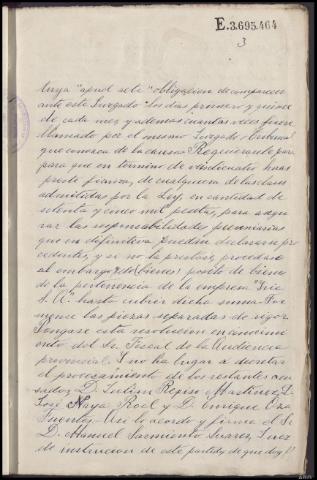 E.3.695.464
3
"apud acta" obligación de comparecer
ante este Juzgado los días primero y quince
de cada mes, y además cuantas veces fuere
llamado por el mismo Juzgado o Tribunal
que conozca de la causa. Requiérase
para que en término de veinticuatro horas
preste fianza, de cualquiera de las clases
admitidas por la Ley, en cantidad de
setenta y cinco mil pesetas, para asegu-
rar las responsabilidades pecuniarias
que en definitiva puedan declararse pro
cedentes, y si no la prestase, procédase
al embargo de bienes
de la pertenencia de la empresa
S. A." hasta cubrir dicha suma. For
mense las piezas separadas de rigor.
Póngase esta resolución en conocimi
ento del Sr. Fiscal de la Audiencia
provincial. Y no ha lugar a decretar
el procesamiento de los restantes
D. Julián Martínez, D.
José Naya Roel y D. Enrique
Fuentes. Así lo acordó y firma el Sr.
D. Manuel Sarmiento Suárez, Juez
de instrucción de este partido, de que doy